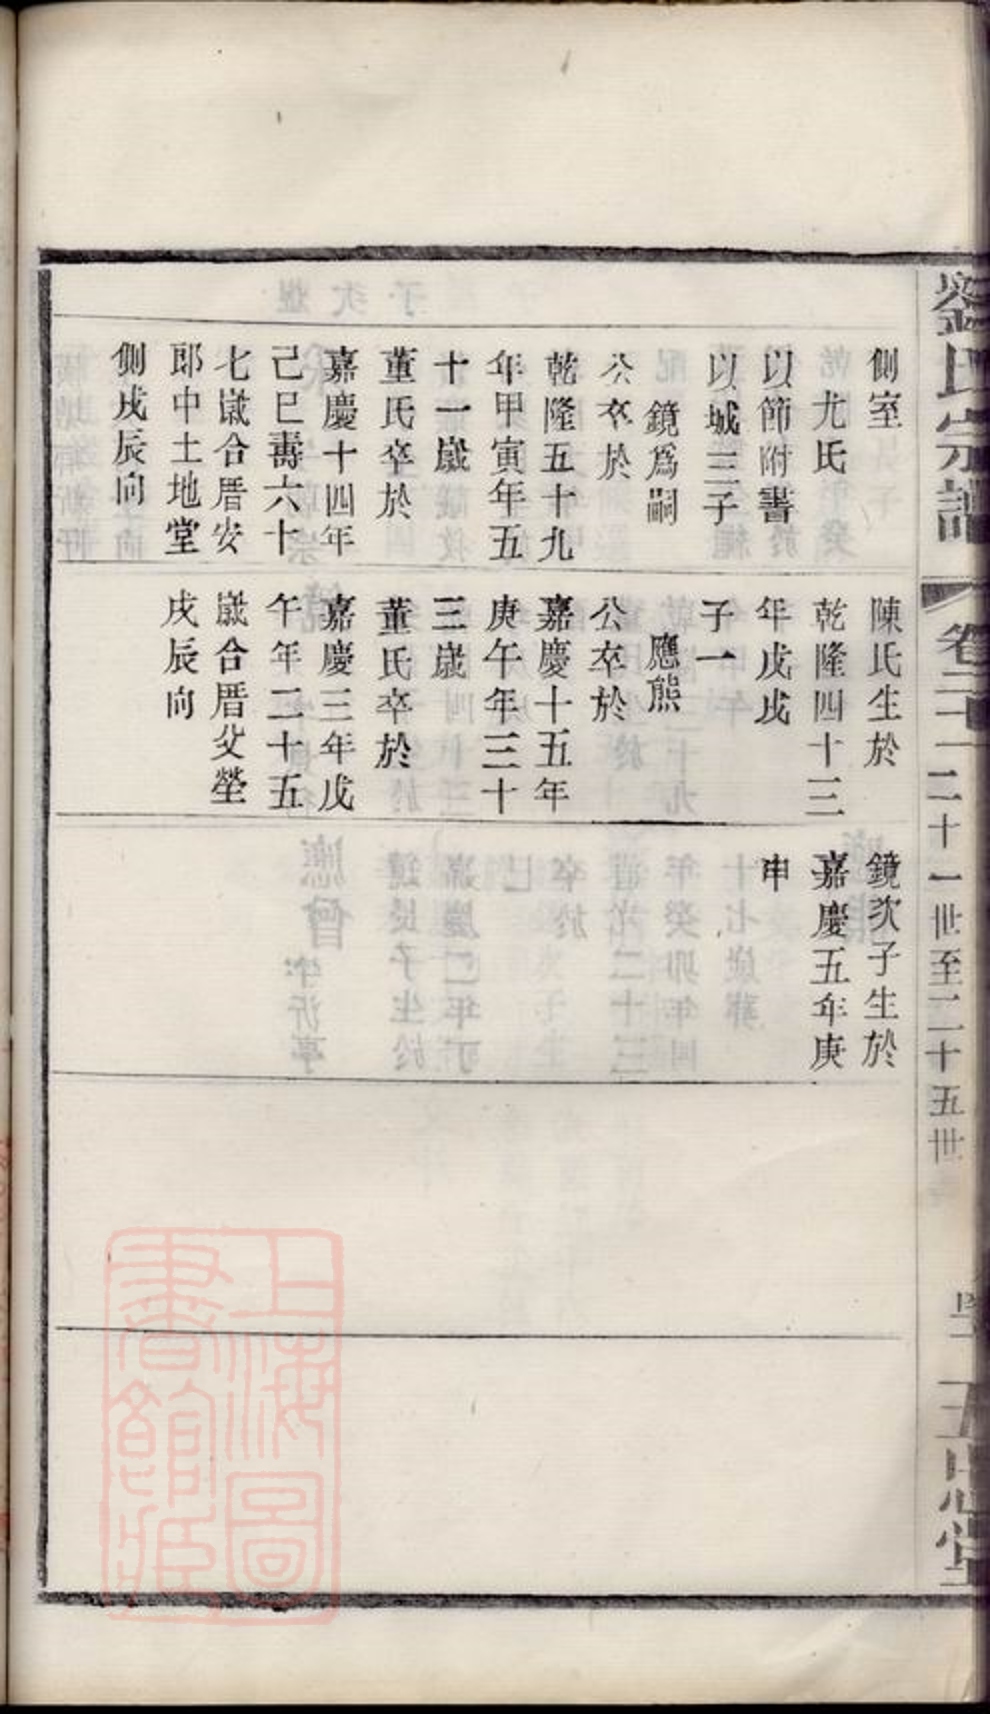 劉氏宗譜
卷二十
二十一世至二十五世
五忠堂
側室
尤氏
以節附書
以城三子
鏡爲嗣
公卒於
乾隆五十九
年甲寅年五
十一歲
董氏卒於
嘉慶十四年
己巳壽六十
七歲合厝安
郎中土地堂
側戌辰向
陳氏生於
乾隆四十三
年戊戌
子一
應熊
公卒於
嘉慶十五年
庚午年三十
三歲
董氏卒於
嘉慶三年戊
午年二十五
歲合厝父塋
戌辰向
鏡次子生於
嘉慶五年庚
申
上海圖
書館藏